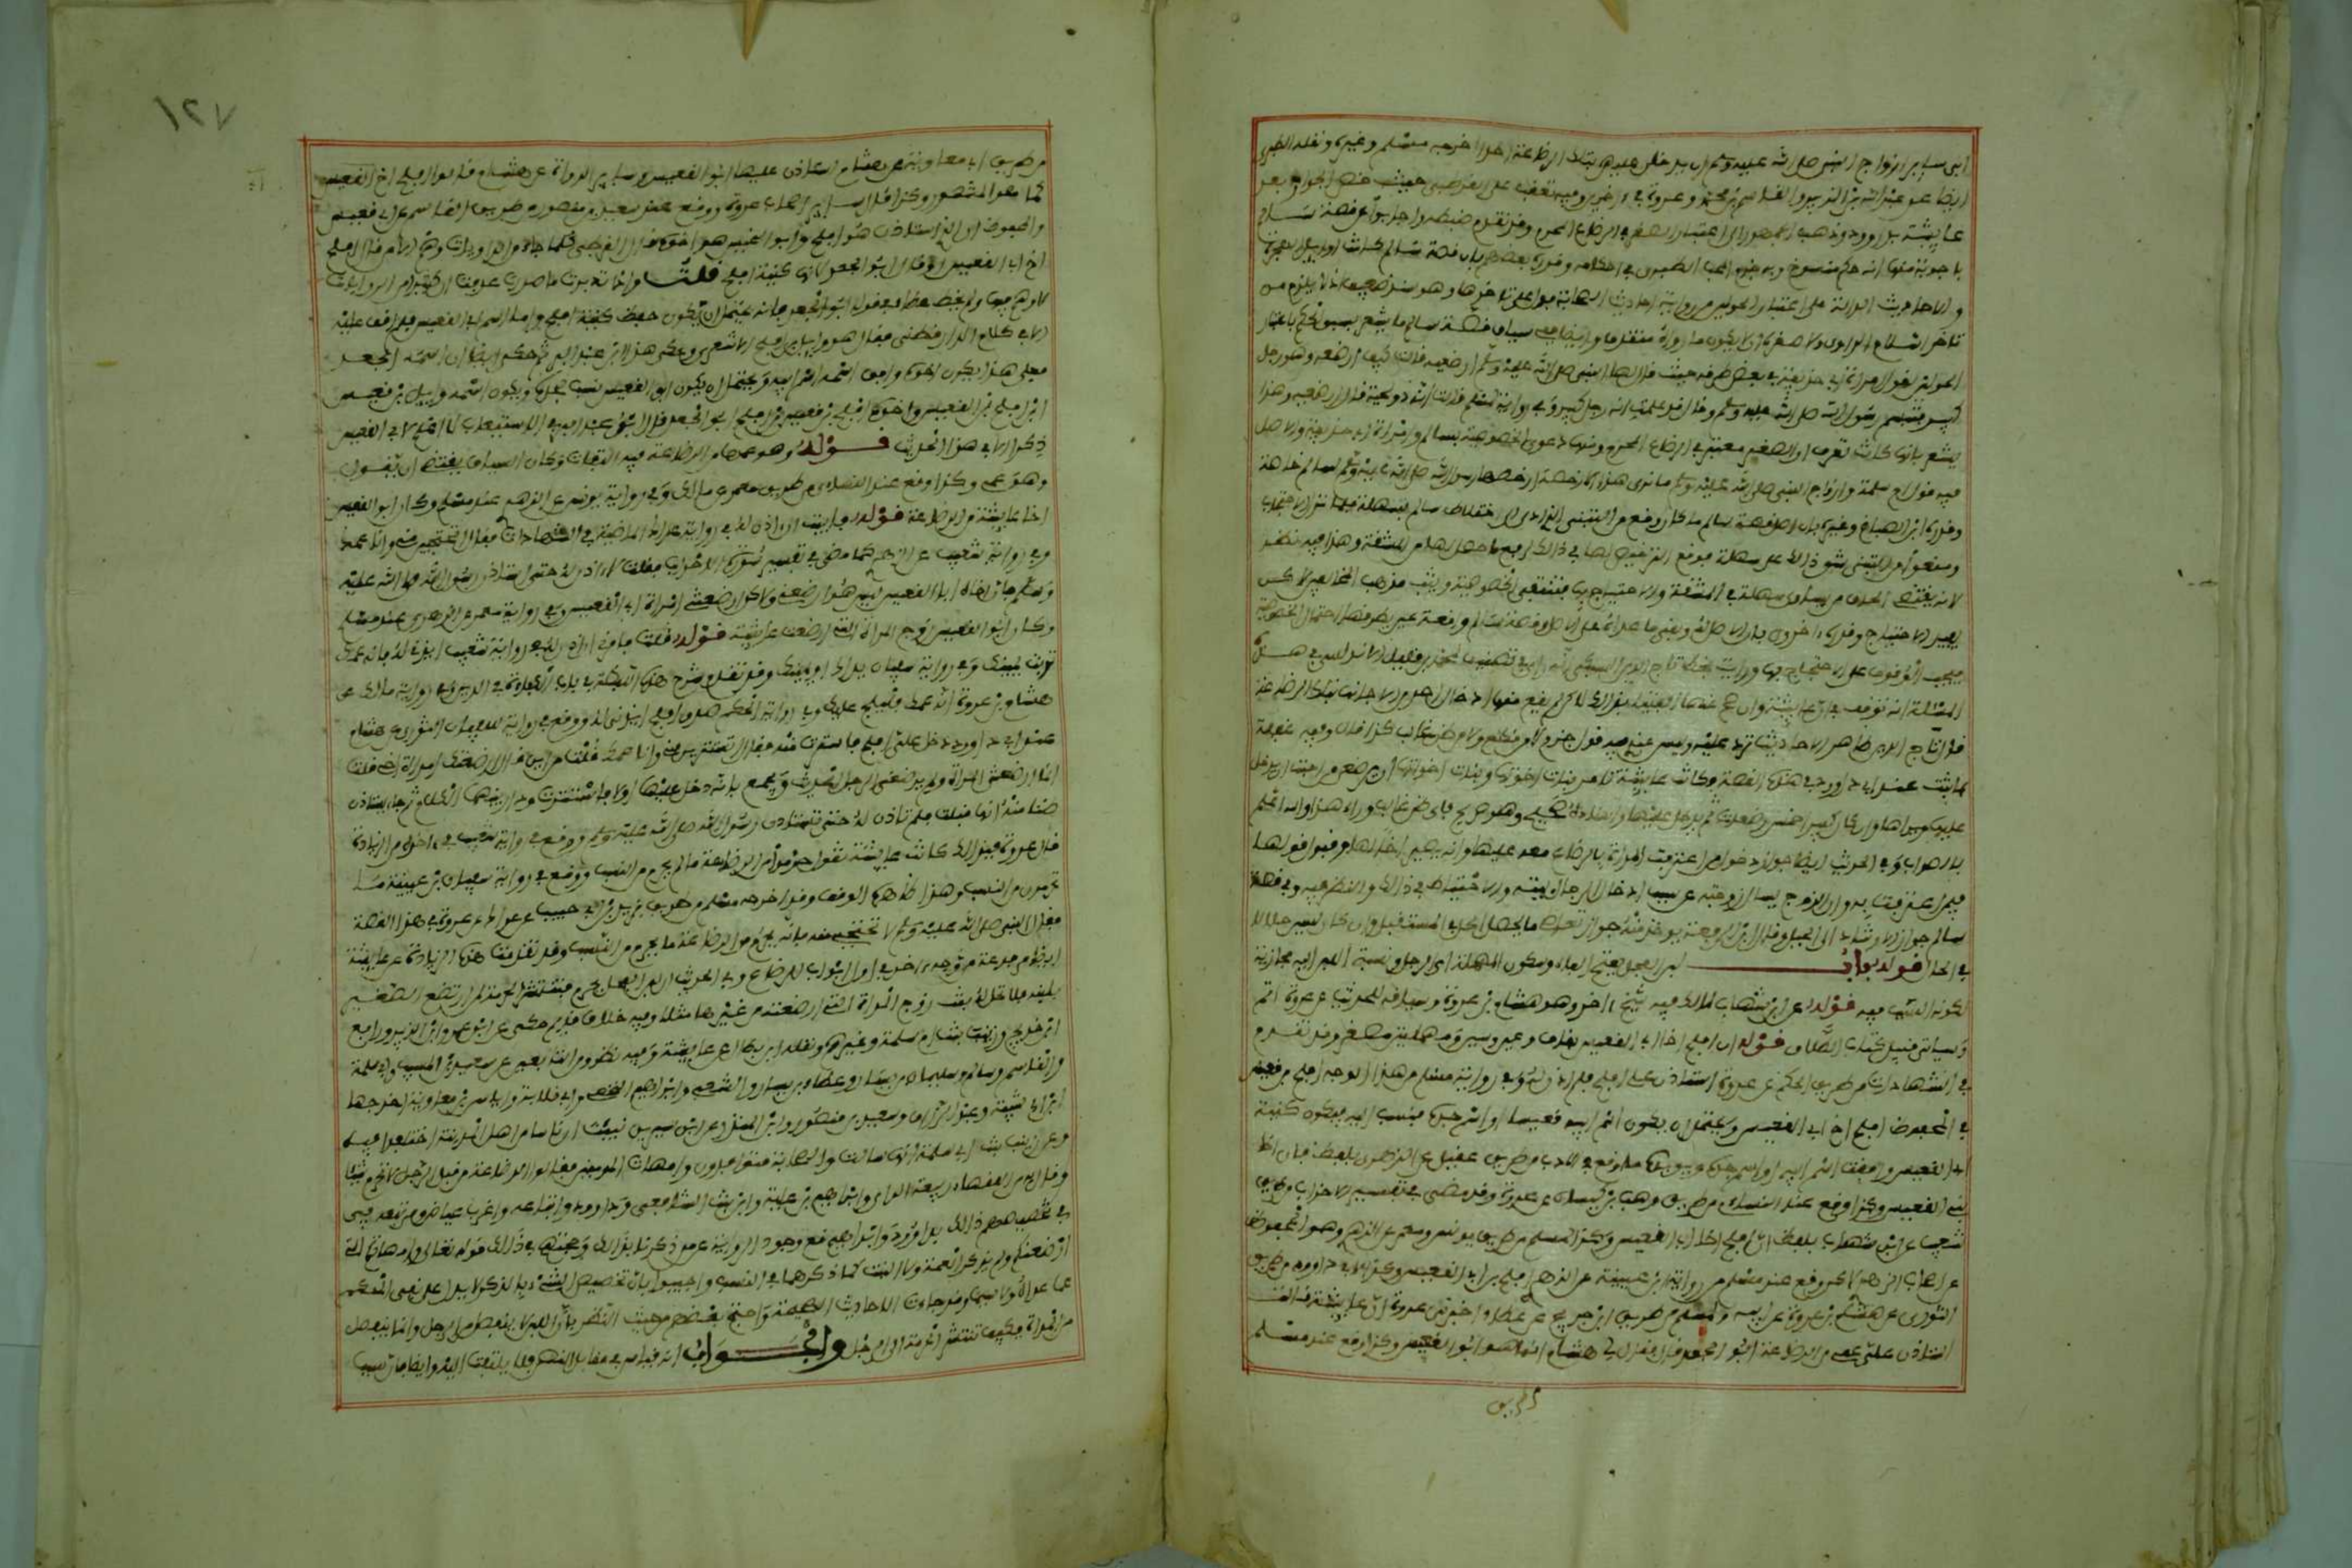 ابى ساير ازواج النبى صلى الله عليه وسلم ان يدخلن عليهن بتلك الرضاعة احدا اخرجه مسلم وغيره ونقله الطبرى
ايضا عن عبد الله بن الزبير والقاسم بن محمد وعروة في اخرين وفيه تعقب على القرطبى حيث خص الجواز بعد
عايشة بداوود وذهب الجمهور الى اعتبار الصغر في الرضاع المحرم وقد تقدم ضبطه واجابوا عن قصة سالم
باجوبة منها انه حكم منسوخ وبه جزم المحب الطبرى في احكامه وقرره بعضهم بان قصة سالم كانت في اوايل الهجرة
والاحاديث الدالة على اعتبار الحولين من رواية احداث الصحابة فدل على تاخرها وهو مستند ضعيف اذ لا يلزم من
تاخر اسلام الراوى ولا صغره ان لا يكون ما رواه متقدما وايضا ففي سياق قصة سالم ما يشعر بسبق الحكم باعتبار
الحولين لقول امراة ابى حذيفة في بعض طرقه حيث قال لها النبى صلى الله عليه وسلم ارضعيه قالت كيف ارضعه وهو رجل
كبير فتبسم رسول الله صلى الله عليه وسلم وقال قد علمت انه رجل كبير وفى رواية لمسلم قالت انه ذو لحية قال ارضعيه وهذا
يشعر بانها كانت تعرف ان الصغر معتبر في الرضاع المحرم ومنها دعوى الخصوصية بسالم وامراة ابى حذيفة والاصل
فيه قول ام سلمة وازواج النبى صلى الله عليه وسلم ما نرى هذا الا رخصة ارخصها رسول الله صلى الله عليه وسلم لسالم خاصة
وقرره ابن الصباغ وغيره بان اصل قصة سالم ما كان وقع من التبنى الذى ادى الى اختلاط سالم بسهلة فلما نزل الاحتجاب
ومنعوا من التبنى شق ذلك على سهلة فوقع الترخيص لها في ذلك لرفع ما حصل لها من المشقة وهذا فيه نظر
لانه يقتضى الحاق من يساوى سهلة في المشقة والاحتجاج بها فتنتفى الخصوصية ويثبت مذهب المخالف لاكن
يفيد الاحتجاج وقرره اخرون بان الاصل ان
المسالة انه توقف في ان عايشة وان صح عنها الفتيا بذلك لاكن لم يقع منها ادخال احد من الاجانب بتلك الرضاعة
قال تاج الدين ظاهر الاحاديث ترد عليه وليس عندى فيه قول جازم لا من قطع ولا من ظن غالب كذا قال وفيه غفلة
عما ثبت عند ابى داوود في هذه القصة وكانت عايشة تامر بنات اخوتها وبنات اخواتها ان يرضعن من احبت ان يدخل
عليها ويراها وان كان كبيرا خمس رضعات ثم يدخل عليها واسناده صحيح وهو صريح فاى ظن غالب وراء هذا والله اعلم
بالصواب وفي الحديث ايضا جواز دخول من اعترفت المراة بالرضاع معه عليها وانه يصير اخا لها وقبول قولها
فيمن اعترفت به وان الزوج يسال زوجته عن سبب ادخال الرجال بيته والاحتياط في ذلك والنظر فيه وفى قصة
سالم جواز الارشاد الى الحيل وقال ابن الرفعة يوخذ منه جواز تعاطى ما يحصل الحل في المستقبل وان كان ليس حلالا
في الحال قوله باب لبن الفحل بفتح الفاء وسكون المهملة اى الرجل ونسبة اللبن اليه مجازية
لكونه السبب فيه قوله عن ابن شهاب لمالك فيه شيخ اخر وهو هشام بن عروة وسياقه للحديث عن عروة اتم
وسياتى قبيل كتاب الطلاق قوله ان افلح اخا ابى القعيس بقاف وعين وسين مهملتين مصغر وقد تقدم
في الشهادات من طريق الحكم عن عروة استاذن على افلح فلم اذن له وفى رواية مسلم من هذا الوجه افلح بن قعيس
في المحفوظ افلح اخو ابى القعيس ويحتمل ان يكون اسم ابيه قعيسا او اسم جده فنسب اليه فتكون كنية
ابى القعيس وافقت اسم ابيه او اسم جده ويويده ما وقع في الادب من طريق عقيل عن الزهرى بلفظ فان اخا
بنى القعيس وكذا وقع عند النسائى من طريق وهب بن كيسان عن عروة وقد مضى في تفسير الاحزاب من طريق
شعيب عن ابن شهاب بلفظ ان افلح اخا ابى القعيس وكذا لمسلم من طريق يونس ومعمر عن الزهرى وهو المحفوظ
عن اصحاب الزهرى لاكن وقع عند مسلم من رواية ابن عيينة عن الزهرى افلح بن ابى القعيس وكذا لابى داوود من طريق
الثورى عن هشام بن عروة عن ابيه ولمسلم من طريق ابن جريج عن عطاء اخبرنى عروة ان عايشة قالت
استاذن على عمى من الرضاعة ابو الجعد قال فقال لى هشام انما هو ابو القعيس وكذا وقع عند مسلم
من طريق
١٢٧
من طريق ابى معاوية عن هشام استاذن عليها ابو القعيس وساير الرواة عن هشام قالوا افلح اخو ابى القعيس
كما هو المشهور وكذا قال ساير اصحاب عروة ووقع عند سعيد بن منصور من طريق القاسم بن ابى قعيس
والمحفوظ ان الذى استاذن هو افلح وابو القعيس هو اخوه قال القرطبى كلما جاء من الروايات وهم الا من قال افلح
اخو ابى القعيس او قال ابو الجعد لانها كنية افلح قلت واذا تدبرت ما حررت عرفت ان كثيرا من الروايات
لا وهم فيه ولم يخط عطاء في قوله ابو الجعد فانه يحتمل ان يكون حفظ كنية افلح واما اسم ابى القعيس فلم اقف عليه
الا في كلام الدارقطنى فقال هو وايل بن افلح الاشعرى وحكى هذا ابن عبد البر ثم حكى ايضا ان اسمه الجعد
فعلى هذا يكون اخوه وافق اسمه اسم ابيه ويحتمل ان يكون ابو القعيس نسب لجده ويكون اسمه وايل بن قعيس
ابن افلح بن القعيس واخوه افلح بن قعيس بن افلح ابو الجعد قال ابن عبد البر في الاستيعاب لا اعلم لابى القعيس
ذكرا الا في هذا الحديث قوله وهو عمها من الرضاعة فيه التفات وكان السياق يقتضى ان يقول
وهو عمى وكذا وقع عند النسائى من طريق معن عن مالك وفي رواية يونس عن الزهرى عند مسلم وكان ابو القعيس
اخا عايشة من الرضاعة قوله فابيت ان اذن له في رواية عراك الماضية في الشهادات فقال اتحتجبين منى وانا عمك
وفي رواية شعيب عن الزهرى كما مضى في تفسير سورة الاحزاب فقلت لا اذن له حتى استاذن رسول الله صلى الله عليه
وسلم فان اخاه ابا القعيس ليس هو ارضعنى ولاكن ارضعتنى امراة ابى القعيس وفي رواية معمر عن الزهرى عند مسلم
وكان ابو القعيس زوج المراة التى ارضعت عايشة قوله فامرنى ان اذن له في رواية شعيب ايذنى له فانه عمك
تربت يمينك وفي رواية سفيان يداك او يمينك وقد تقدم شرح هذه اللفظة في باب الاكفاء في الدين وفي رواية مالك عن
هشام بن عروة انه عمك فليلج عليك وفي رواية الحكم صدق افلح ايذنى له ووقع في رواية سفيان الثورى عن هشام
عند ابى داوود دخل على افلح فاستترت منه فقال اتستترين منى وانا عمك قلت من اين قال ارضعتك امراة اخى قلت
انما ارضعتنى المراة ولم يرضعنى الرجل الحديث ويجمع بانه دخل عليها اولا فاستترت ودار بينهما الكلام ثم جاء يستاذن
ظنا منه انها قبلت فلم تاذن له حتى تستاذن رسول الله صلى الله عليه وسلم ووقع في رواية شعيب في اخره من الزيادة
قال عروة فبذلك كانت عايشة تقول حرموا من الرضاعة ما يحرم من النسب ووقع في رواية سفيان بن عيينة ما
تحرمون من النسب وهذا ظاهره الوقف وقد اخرجه مسلم من طريق يزيد بن ابى حبيب عن عراك عن عروة في هذه القصة
فقال النبى صلى الله عليه وسلم لا تحتجبى منه فانه يحرم من الرضاعة ما يحرم من النسب وقد تقدمت هذه الزيادة عن عايشة
ايضا مرفوعة من وجه اخر في اول ابواب الرضاع وفي الحديث ان لبن الفحل يحرم فتنتشر الحرمة لمن ارتضع الصغير
بلبنه فلا تحل له بنت زوج المراة التى ارضعته من غيرها مثلا وفيه خلاف قديم حكى عن ابن عمر وابن الزبير ورافع
ابن خديج وزينب بنت ام سلمة وغيرهم ونقله ابن بطال عن عايشة وفيه نظر ومن التابعين عن سعيد بن المسيب وابى سلمة
والقاسم وسالم وسليمان بن يسار وعطاء بن يسار والشعبى وابراهيم النخعى وابى قلابة واياس بن معاوية اخرجها
ابن ابى شيبة وعبد الرزاق وسعيد بن منصور وابن المنذر وعن ابن سيرين نبيت ان ناسا من اهل المدينة اختلفوا فيه
وعن زينب بنت ابى سلمة انها سالت والصحابة متوافرون وامهات المومنين فقالوا الرضاعة من قبل الرجل لا تحرم شيا
وقال به من الفقهاء ربيعة الراى وابراهيم بن علية وابن بنت الشافعى وداوود واتباعه واغرب عياض ومن تبعه فى
في تخصيصهم ذلك بداوود وابراهيم مع وجود الرواية عمن ذكرنا بذلك وحجتهم في ذلك قوله تعالى وامهاتكم التى
ارضعنكم ولم يذكر العمة ولا البنت كما ذكرهما في النسب واجيبوا بان تخصيص الشىء بالذكر لا يدل على نفى الحكم
عما عداه ولا سيما وقد جاءت الاحاديث الصحيحة واحتج بعضهم من حيث النظر بان اللبن لا ينفصل من الرجل وانما ينفصل
من المراة فكيف تنتشر الحرمة الى الرجل والجواب انه قياس في مقابل النص فلا يلتفت اليه وايضا فان سبب